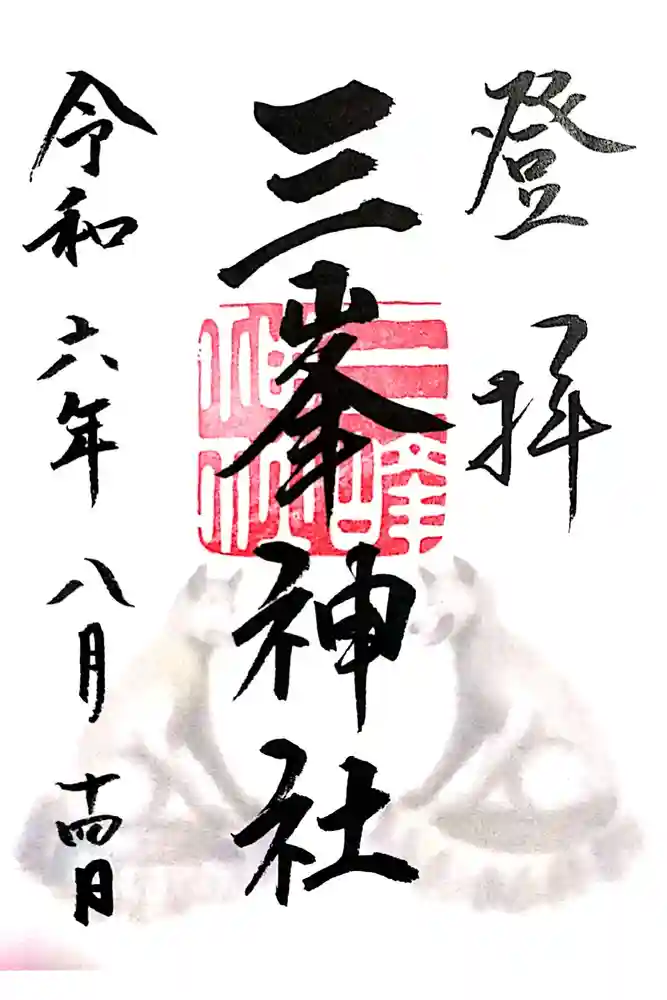 登拝
三峯神社
三峰神社
令和六年八月十四日